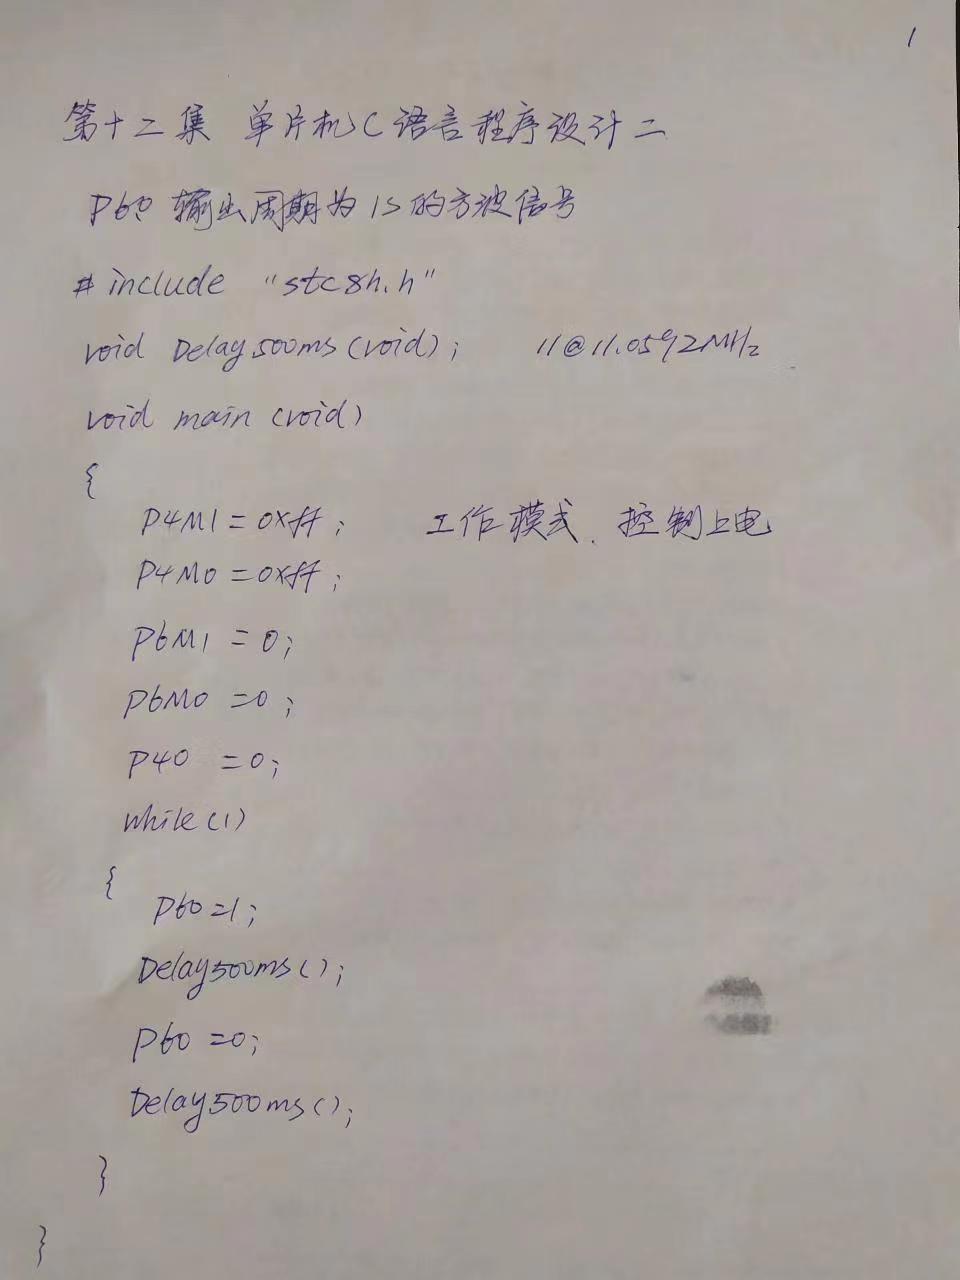 1
第十二集 单片机C语言程序设计二
P60 输出周期为1S的方波信号
#include "stc8h.h"
void Delay500ms(void); //@11.0592MHz
void main(void)
{
P4M1=0xff; 工作模式、控制上电
P4M0=0xff;
P6M1=0;
P6M0=0;
P40=0;
while(1)
{
P60=1;
Delay500ms();
P60=0;
Delay500ms();
}
}